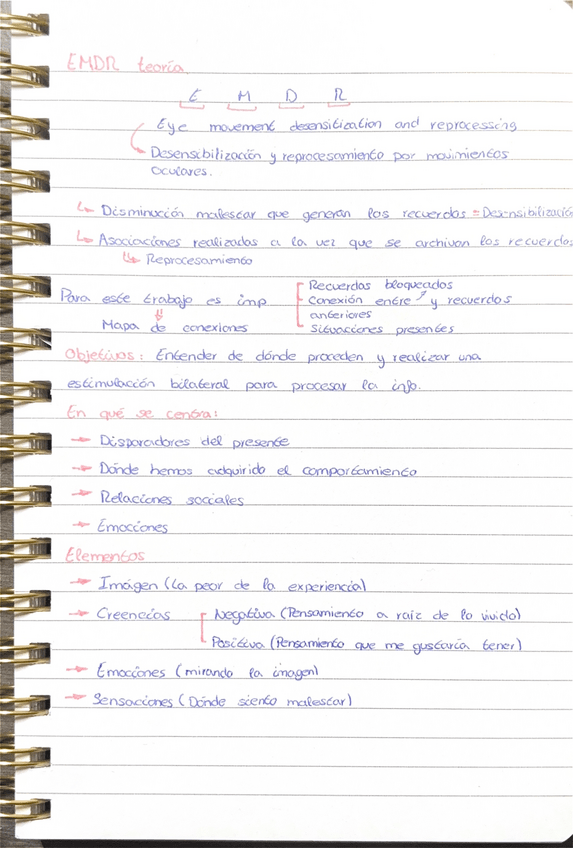 EMDR teoría
E M D R
Eye movement desensitization and reprocessing
Desensibilización y reprocesamiento por movimientos
oculares.
Disminución malestar que generan los recuerdos = Desensibilizació
Asociaciones realizadas a la vez que se archivan los recuerdos
Reprocesamiento
Para este trabajo es imp
Mapa de conexiones
Recuerdos bloqueados
Conexión entre ↗ y recuerdos
anteriores
Situaciones presentes
Objetivos: Entender de dónde proceden y realizar una
estimulación bilateral para procesar la info.
En qué se centra:
→ Disparadores del presente
→ Dónde hemos adquirido el comportamiento
→ Relaciones sociales
→ Emociones
Elementos
→ Imágen (La peor de la experiencia)
→ Creencias
Negativa (Pensamiento a raíz de lo vivido)
Positiva (Pensamiento que me gustaría tener)
→ Emociones (mirando la imagen)
→ Sensaciones (Dónde siento malestar)